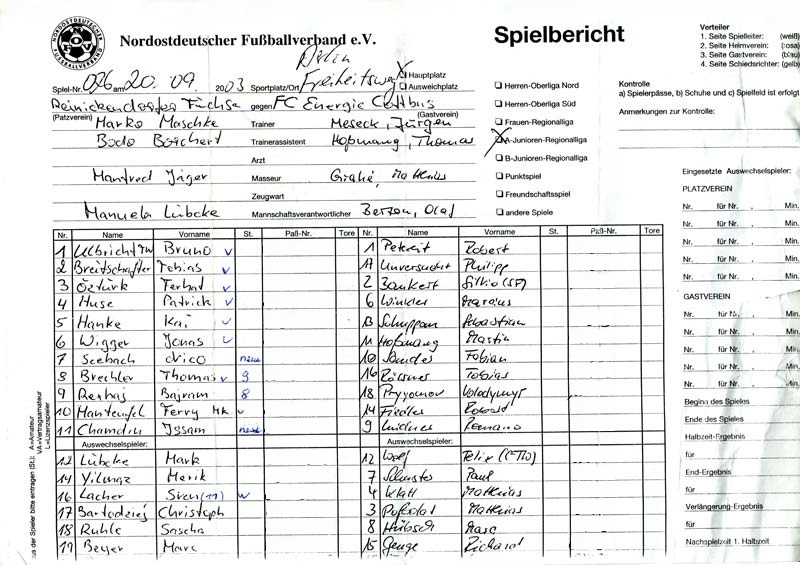 Nordostdeutscher Fußballverband e.V.
Spielbericht
Verteiler
1. Seite Spielleiter: (weiß)
2. Seite Heimverein: (rosa)
3. Seite Gastverein: (blau)
4. Seite Schiedsrichter: (gelb)
Berlin
Spiel-Nr. 076 am 20. 09. 2003 Sportplatz/Ort Freiheitsweg
Hauptplatz
Ausweichplatz
Reinickendorfer Füchse gegen FC Energie Cottbus
(Platzverein) (Gastverein)
Marko Maschke Trainer Meseck, Jürgen
Bodo Borchert Trainerassistent Hoßmang, Thomas
Arzt
Manfred Jäger Masseur Grahé, Matthias
Zeugwart
Manuela Lübcke Mannschaftsverantwortlicher Berzon, Olaf
Herren-Oberliga Nord
Herren-Oberliga Süd
Frauen-Regionalliga
A-Junioren-Regionalliga
B-Junioren-Regionalliga
Punktspiel
Freundschaftsspiel
andere Spiele
Kontrolle
a) Spielerpässe, b) Schuhe und c) Spielfeld ist erfolgt
Anmerkungen zur Kontrolle:
Nr. Name Vorname St. Paß-Nr. Tore Nr. Name Vorname St. Paß-Nr. Tore
1 Ulbricht TW Bruno v 1 Petereit Robert
2 Breitschafter Tobias v 17 Unversucht Philipp
3 Öztürk Ferhat v 2 Bankert Silvio (SF)
4 Huse Patrick v 6 Winkler Marcus
5 Hanke Kai v 13 Schuppan Sebastian
6 Wigger Jonas v 11 Hoßmang Martin
7 Seebach Nico neu 10 Fabian
8 Brechler Thomas v 9 16 Rößner Tobias
9 Rexhaj Bajram 8 18 Pryyomov Volodymyr
10 Manteufel Ferry MK v 14 Fiedler Robert
11 Chamdin Issam neu 9 Lindner Romano
Auswechselspieler: Auswechselspieler:
12 Lübcke Mark 12 Wolf Felix (ETW)
14 Yilmaz Merik 7 Schuster Paul
16 Lacher Sven (11) v 4 Klatt Matthias
17 Bartodziej Christoph 3 Matthias
18 Ruhle Sascha 8 Hübsch Marc
19 Beyer Marc 15 Genge Richard
Eingesetzte Auswechselspieler:
PLATZVEREIN
Nr. für Nr. , Min.
Nr. für Nr. , Min.
Nr. für Nr. , Min.
Nr. für Nr. , Min.
Nr. für Nr. , Min.
GASTVEREIN
Nr. für Nr. , Min.
Nr. für Nr. , Min.
Nr. für Nr. , Min.
Nr. für Nr. , Min.
Nr. für Nr. , Min.
Beginn des Spieles
Ende des Spieles
Halbzeit-Ergebnis
für
End-Ergebnis
für
Verlängerung-Ergebnis
für
Nachspielzeit 1. Halbzeit
aus der Spieler bitte eintragen (St.): A=Amateur
VA=Vertragsamateur
L=Lizenzspieler